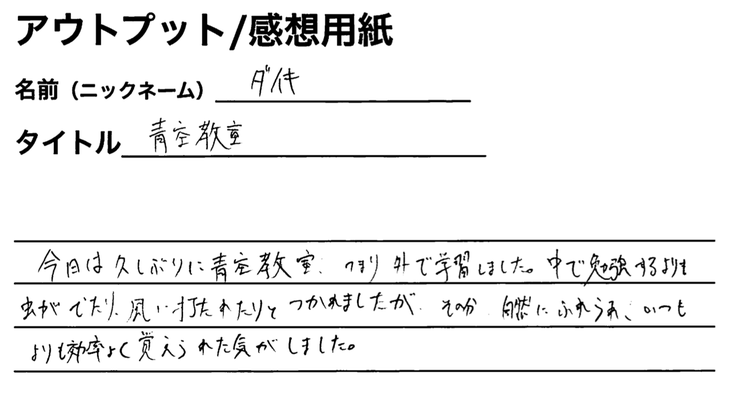 アウトプット/感想用紙
名前（ニックネーム） ダイキ
タイトル 青空教室
今日は久しぶりに青空教室、つまり外で学習しました。中で勉強するよりも
虫がでたり、風に打たれたりとつかれましたが、その分、自然にふれられ、いつも
よりも効率よく覚えられた気がしました。